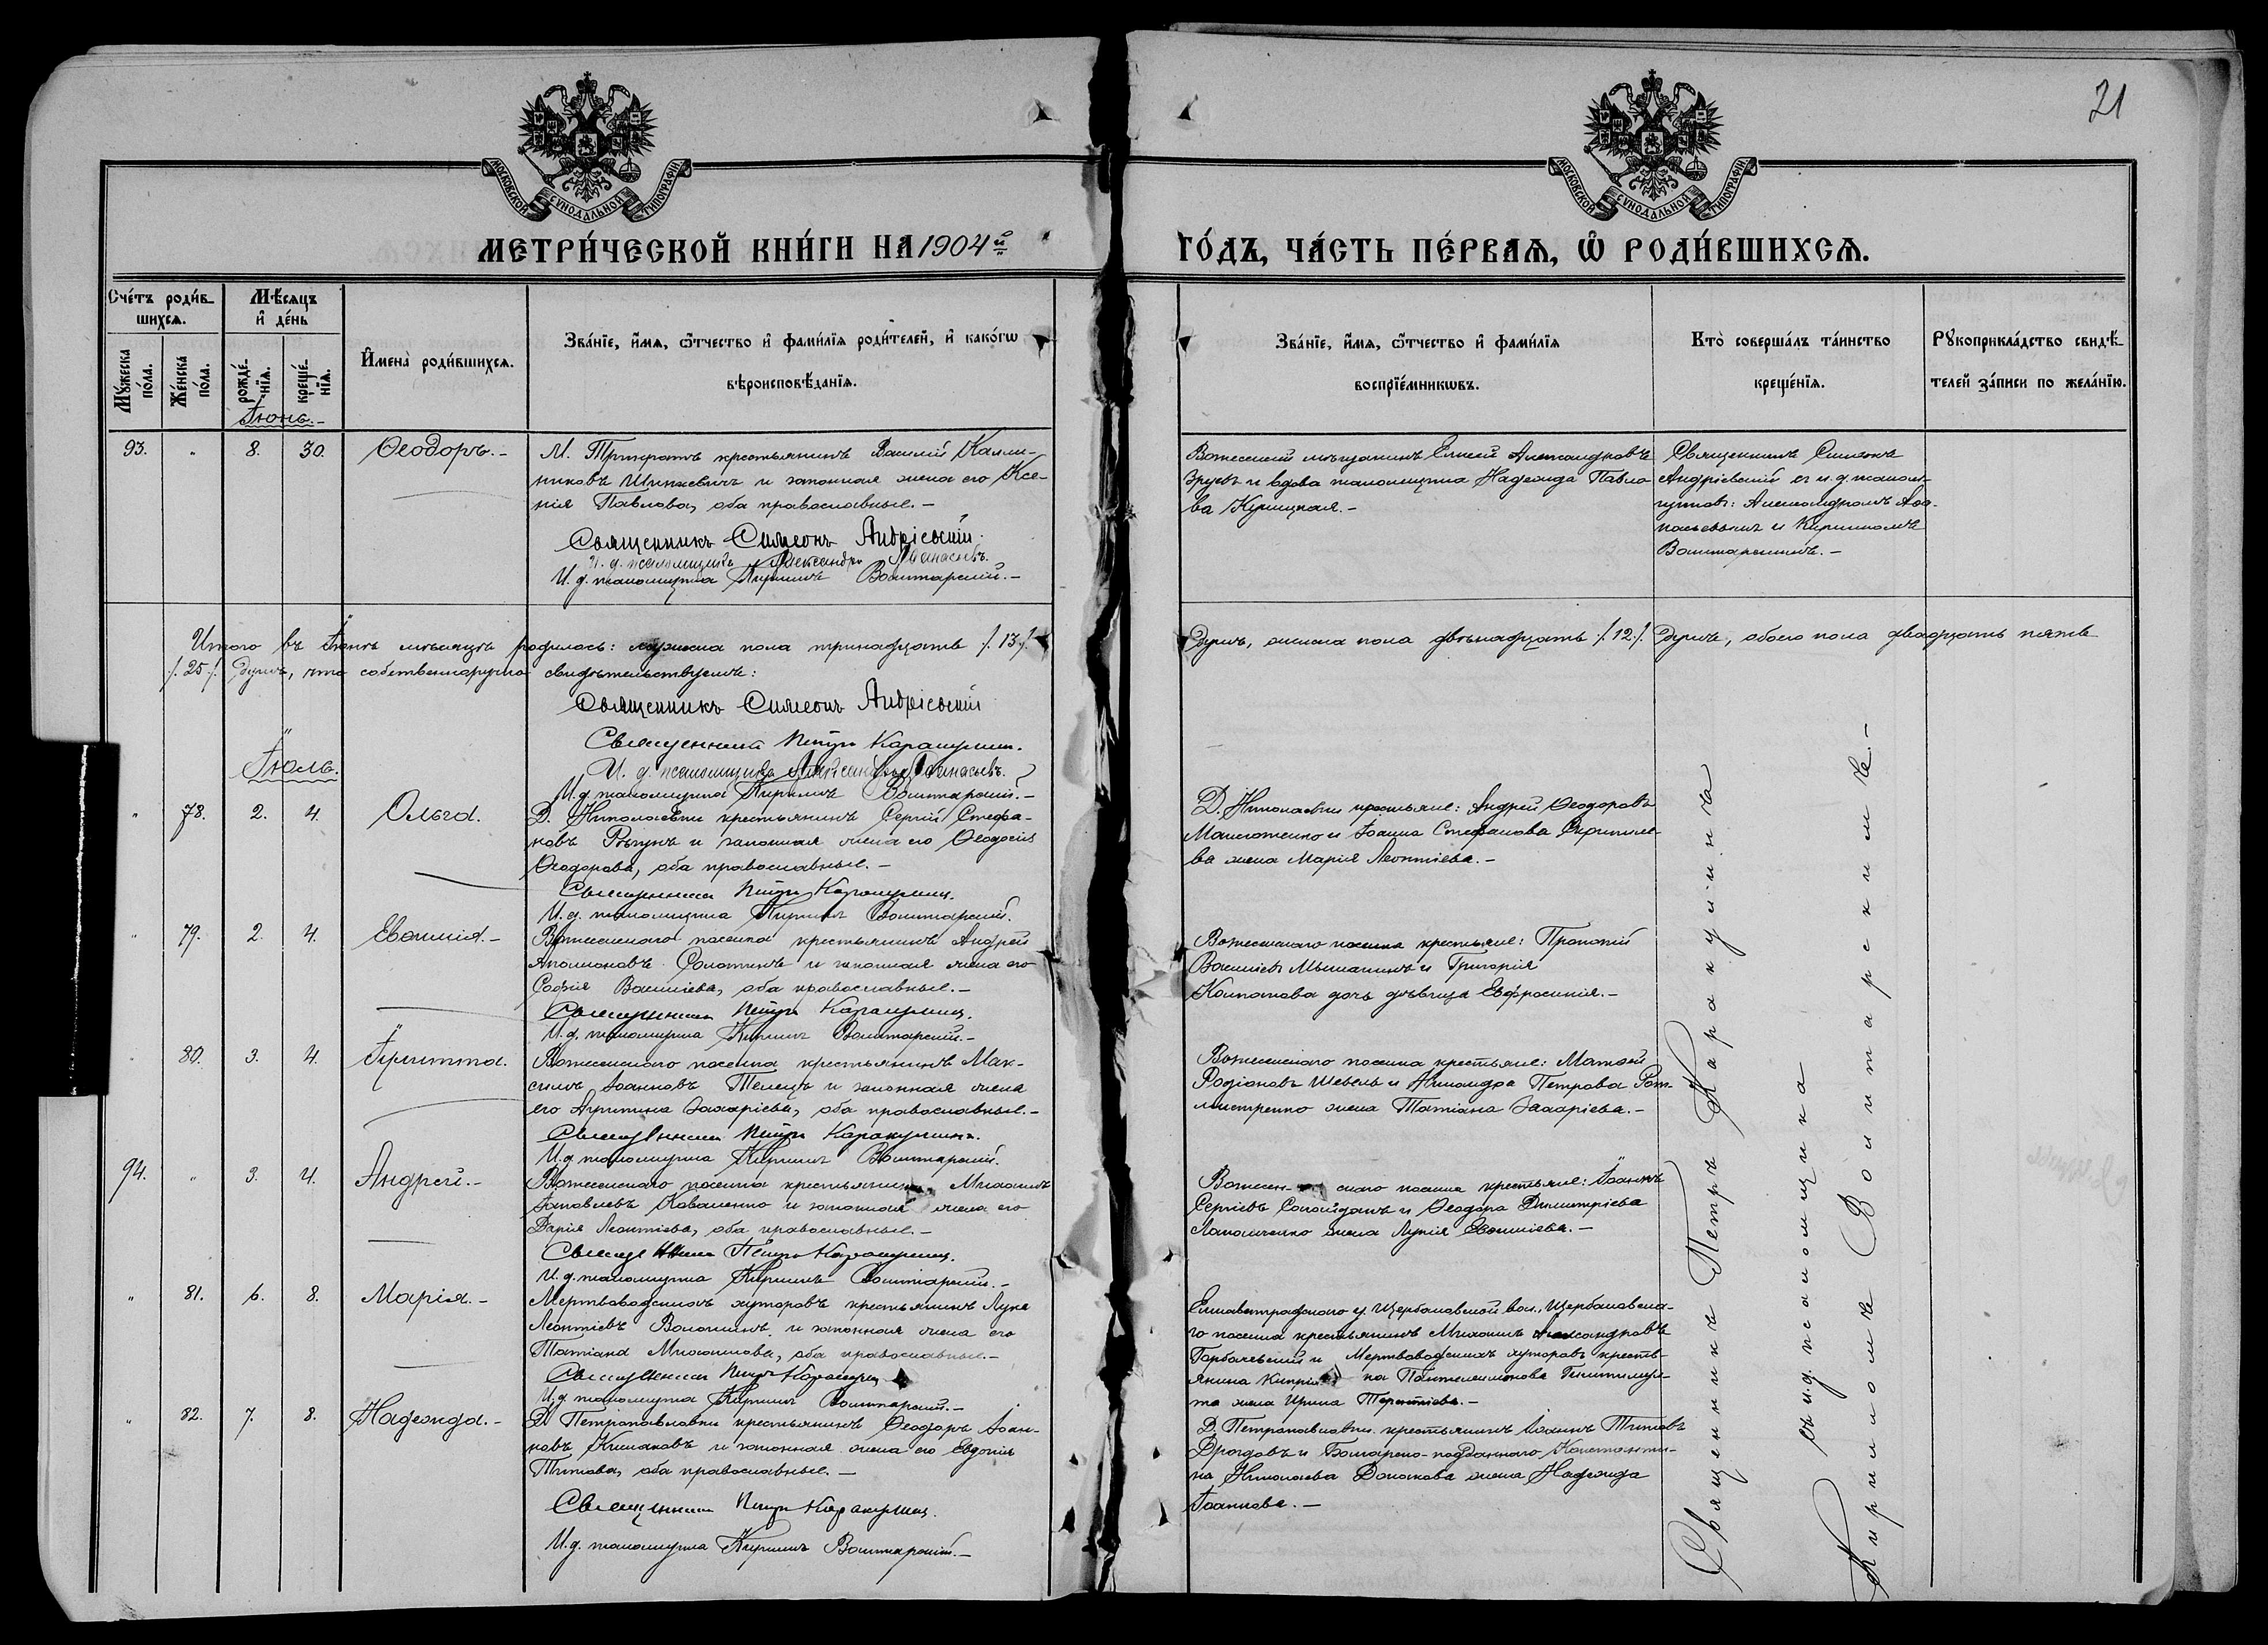 21
МОСКОВСКОЙ СѴНОДАЛЬНОЙ ТИПОГРАФІИ
МОСКОВСКОЙ СѴНОДАЛЬНОЙ ТИПОГРАФІИ
МЕТРИ́ЧЕСКОЙ КНИ́ГИ НА 1904й
ГО́ДЪ, ЧА́СТЬ ПЕ́РВАѦ, Ѡ РОДИ́ВШИХСѦ.
Сче́тъ роди́в-
шихсѧ.
Мѣ́сѧцъ
и де́нь
Мꙋ́жеска
по́ла.
Же́нска
по́ла.
рожде́-
нїѧ.
креще́-
нїѧ.
Имена̀ роди́вшихсѧ.
Зва́нїе, и́мѧ, ѻ́тчество и фами́лїѧ роди́телей, и како́гѡ
вѣроисповѣ́данїѧ.
Зва́нїе, и́мѧ, ѻ́тчество и фами́лїѧ
воспрїе́мникѡвъ.
Кто̀ соверша́лъ та́инство
креще́нїѧ.
Рꙋкоприкла́дство свидѣ́-
телей за́писи по жела́нїю.
Іюнь.-
93. " 8. 30. Ѳеодоръ.-
М. Трикратъ крестьянинъ Василій Калли-
никовъ и законная жена его Ксе-
нія Павлова, оба православные.-
Священникъ Симеонъ Андріевскій.
И. д. псаломщика Александръ Аѳанасьевъ.
И. д. псаломщика Кириллъ Войтарскій.-
Вознесенскій мѣщанинъ Елисей Александровъ
и вдова псаломщика Надежда Павло-
ва Курицкая.-
Священникъ Симеонъ
Андріевскій съ и. д. псалом-
щиковъ: Александромъ Аѳа-
насьевымъ и Кирилломъ
Войтарскимъ.-
Итого въ Іюнѣ мѣсяцѣ родилось: мужска пола тринадцать /.13./
душъ, женска пола двѣнадцать /.12./ душъ, обоего пола двадцать пять
/.25./ душъ, что собственноручно свидѣтельствуемъ:
Священникъ Симеонъ Андріевскій
Священникъ Петръ Каракулинъ.
И. д. псаломщика Александръ Аѳанасьевъ.
И. д. псаломщика Кириллъ Войтарскій.-
Іюль.
" 78. 2. 4. Ольга.
Д. Николаевки крестьянинъ Сергій Стефа-
новъ Рѣзунъ и законная жена его Ѳеодосія
Ѳеодорова, оба православные.-
Священникъ Петръ Каракулинъ.
И. д. псаломщика Кириллъ Войтарскій.
Д. Николаевки крестьяне: Андрей Ѳеодоровъ
и Іоанна Стефанова
жена Марія Леонтіева.-
" 79. 2. 4. Евѳимія.-
Вознесенскаго поселка крестьянинъ Андрей
Аполлоновъ Солоткинъ и законная жена его
Софія Василіева, оба православные.-
Священникъ Петръ Каракулинъ.
И. д. псаломщика Кириллъ Войтарскій.-
Вознесенскаго поселка крестьяне: Прокопій
Василіевъ и Григорія
Колпакова дочь дѣвица Евфросинія.-
" 80. 3. 4. Іулитта.
Вознесенскаго поселка крестьянинъ Мак-
симъ Іоанновъ Телецъ и законная жена
его Акилина Захаріева, оба православные.-
Священникъ Петръ Каракулинъ.
И. д. псаломщика Кириллъ Войтарскій.
Вознесенскаго поселка крестьяне: Матѳей
Родіоновъ Шевель и Александра Петрова Рот-
мистренко жена Татіана Захаріева.-
94. " 3. 4. Андрей.-
Вознесенскаго поселка крестьянинъ Михаилъ
Іаковлевъ Коваленко и законная жена его
Дарія Леонтіева, оба православные.-
Священникъ Петръ Каракулинъ.
И. д. псаломщика Кириллъ Войтарскій.-
Вознесен-скаго поселка крестьяне: Іоаннъ
Сергіевъ и Ѳеодора Димитріева
жена Лукія Евѳиміева.-
" 81. 6. 8. Марія.-
Мертвоводскихъ хуторовъ крестьянинъ Лука
Леонтіевъ Волошинъ и законная жена его
Татіана Михаилова, оба православные.-
Священникъ Петръ Каракулинъ
И. д. псаломщика Кириллъ Войтарскій.-
Елисаветградскаго у. Щербановской вол., Щербановска-
го поселка крестьянинъ Михаилъ Александровъ
Горбачевскій и Мертвоводскихъ хуторовъ кресть-
янина Пантелеимонова
жена Ирина Терентіева.-
" 82. 7. 8. Надежда.-
Д. Петропавловки крестьянинъ Ѳеодоръ Іоан-
новъ и законная жена его Евдокія
Титова, оба православные.-
Священникъ Петръ Каракулинъ.
И. д. псаломщика Кириллъ Войтарскій.-
Д. Петропавловки крестьянинъ Іоаннъ Титовъ
Дроздовъ и Болгарско-подданнаго Константи-
на Николаева жена Надежда
Іоаннова.-
Священникъ Петръ Каракулинъ
съ и. д. псаломщика
Кирилломъ Войтарскимъ.-